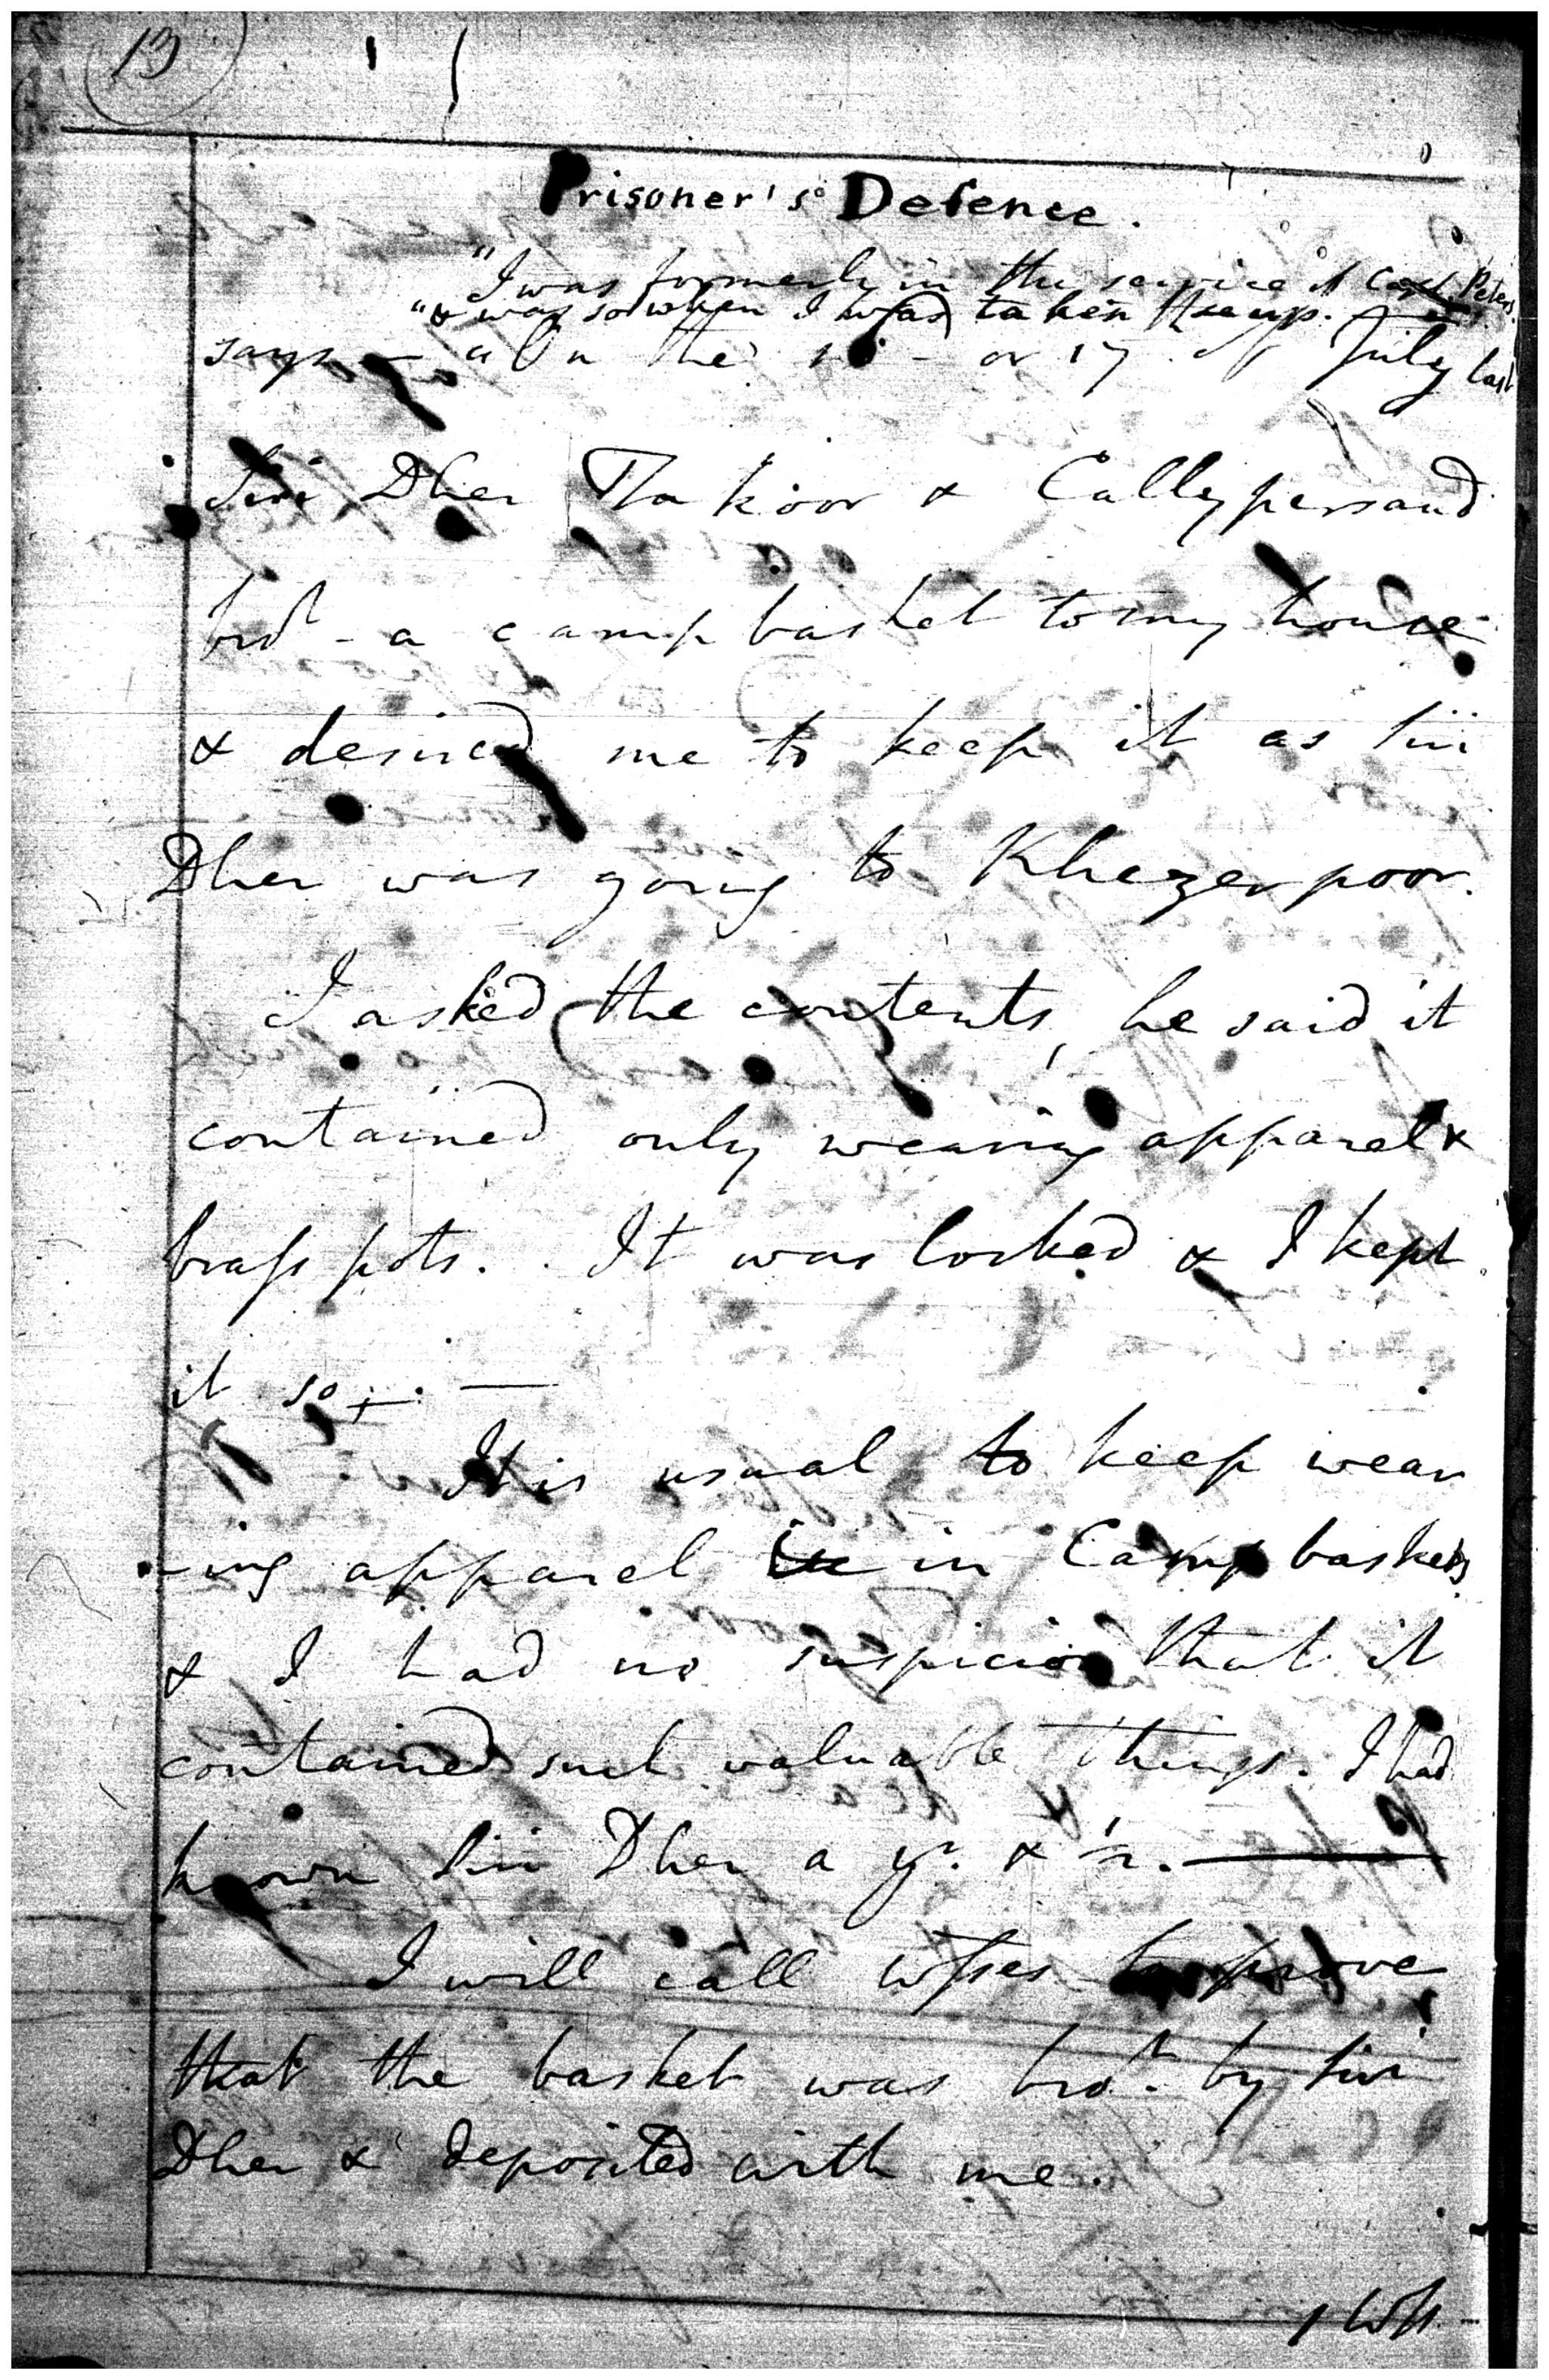 13
Prisoner's Defence.
"I was formerly in the service of Capt Peters.
"& was so when I was taken up.
says — "On the 16 - or 17 of July last
Siri Dher Takoor & Callypersaud
brot - a camp basket to my house
& desired me to keep it as Siri
Dher was going to Khezerpoor.
I asked the contents, he said it
contained only wearing apparel &
brass pots. It was locked & I kept
it so. —
It is usual to keep wear
-ing apparel in in Camp baskets
& I had no suspicion that it
contained such valuable things. I had
known Siri Dher a yr. & ½. —
I will call wsses to prove
that the basket was brot. by Siri
Dher & deposited with me.
1 Wss